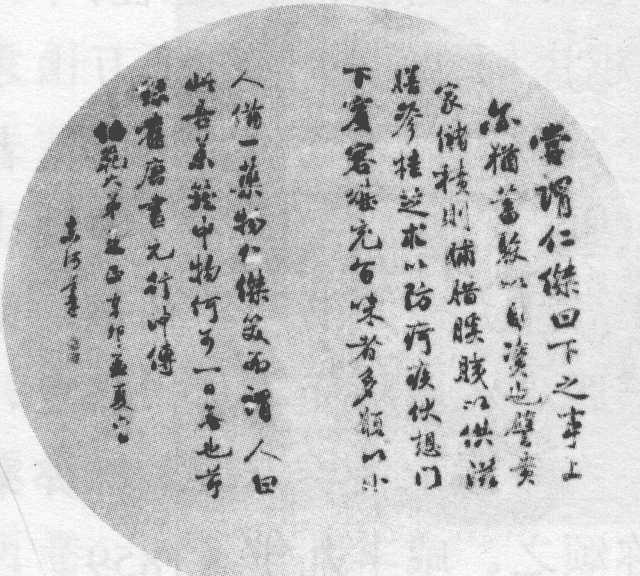 嘗謂仁傑曰下之事上
尒猶蓄聚以自資也譬貴
家儲積則脯腊膎胰以供滋
膳參桂芝朮以防疴疾伏想门
下賓客堪充旨味者多願以小
人備一藥物仁傑笑而謂人曰
此吾藥籠中物何可一日無也节
録舊唐書元行沖傳
範大弟正辛卯孟夏六日